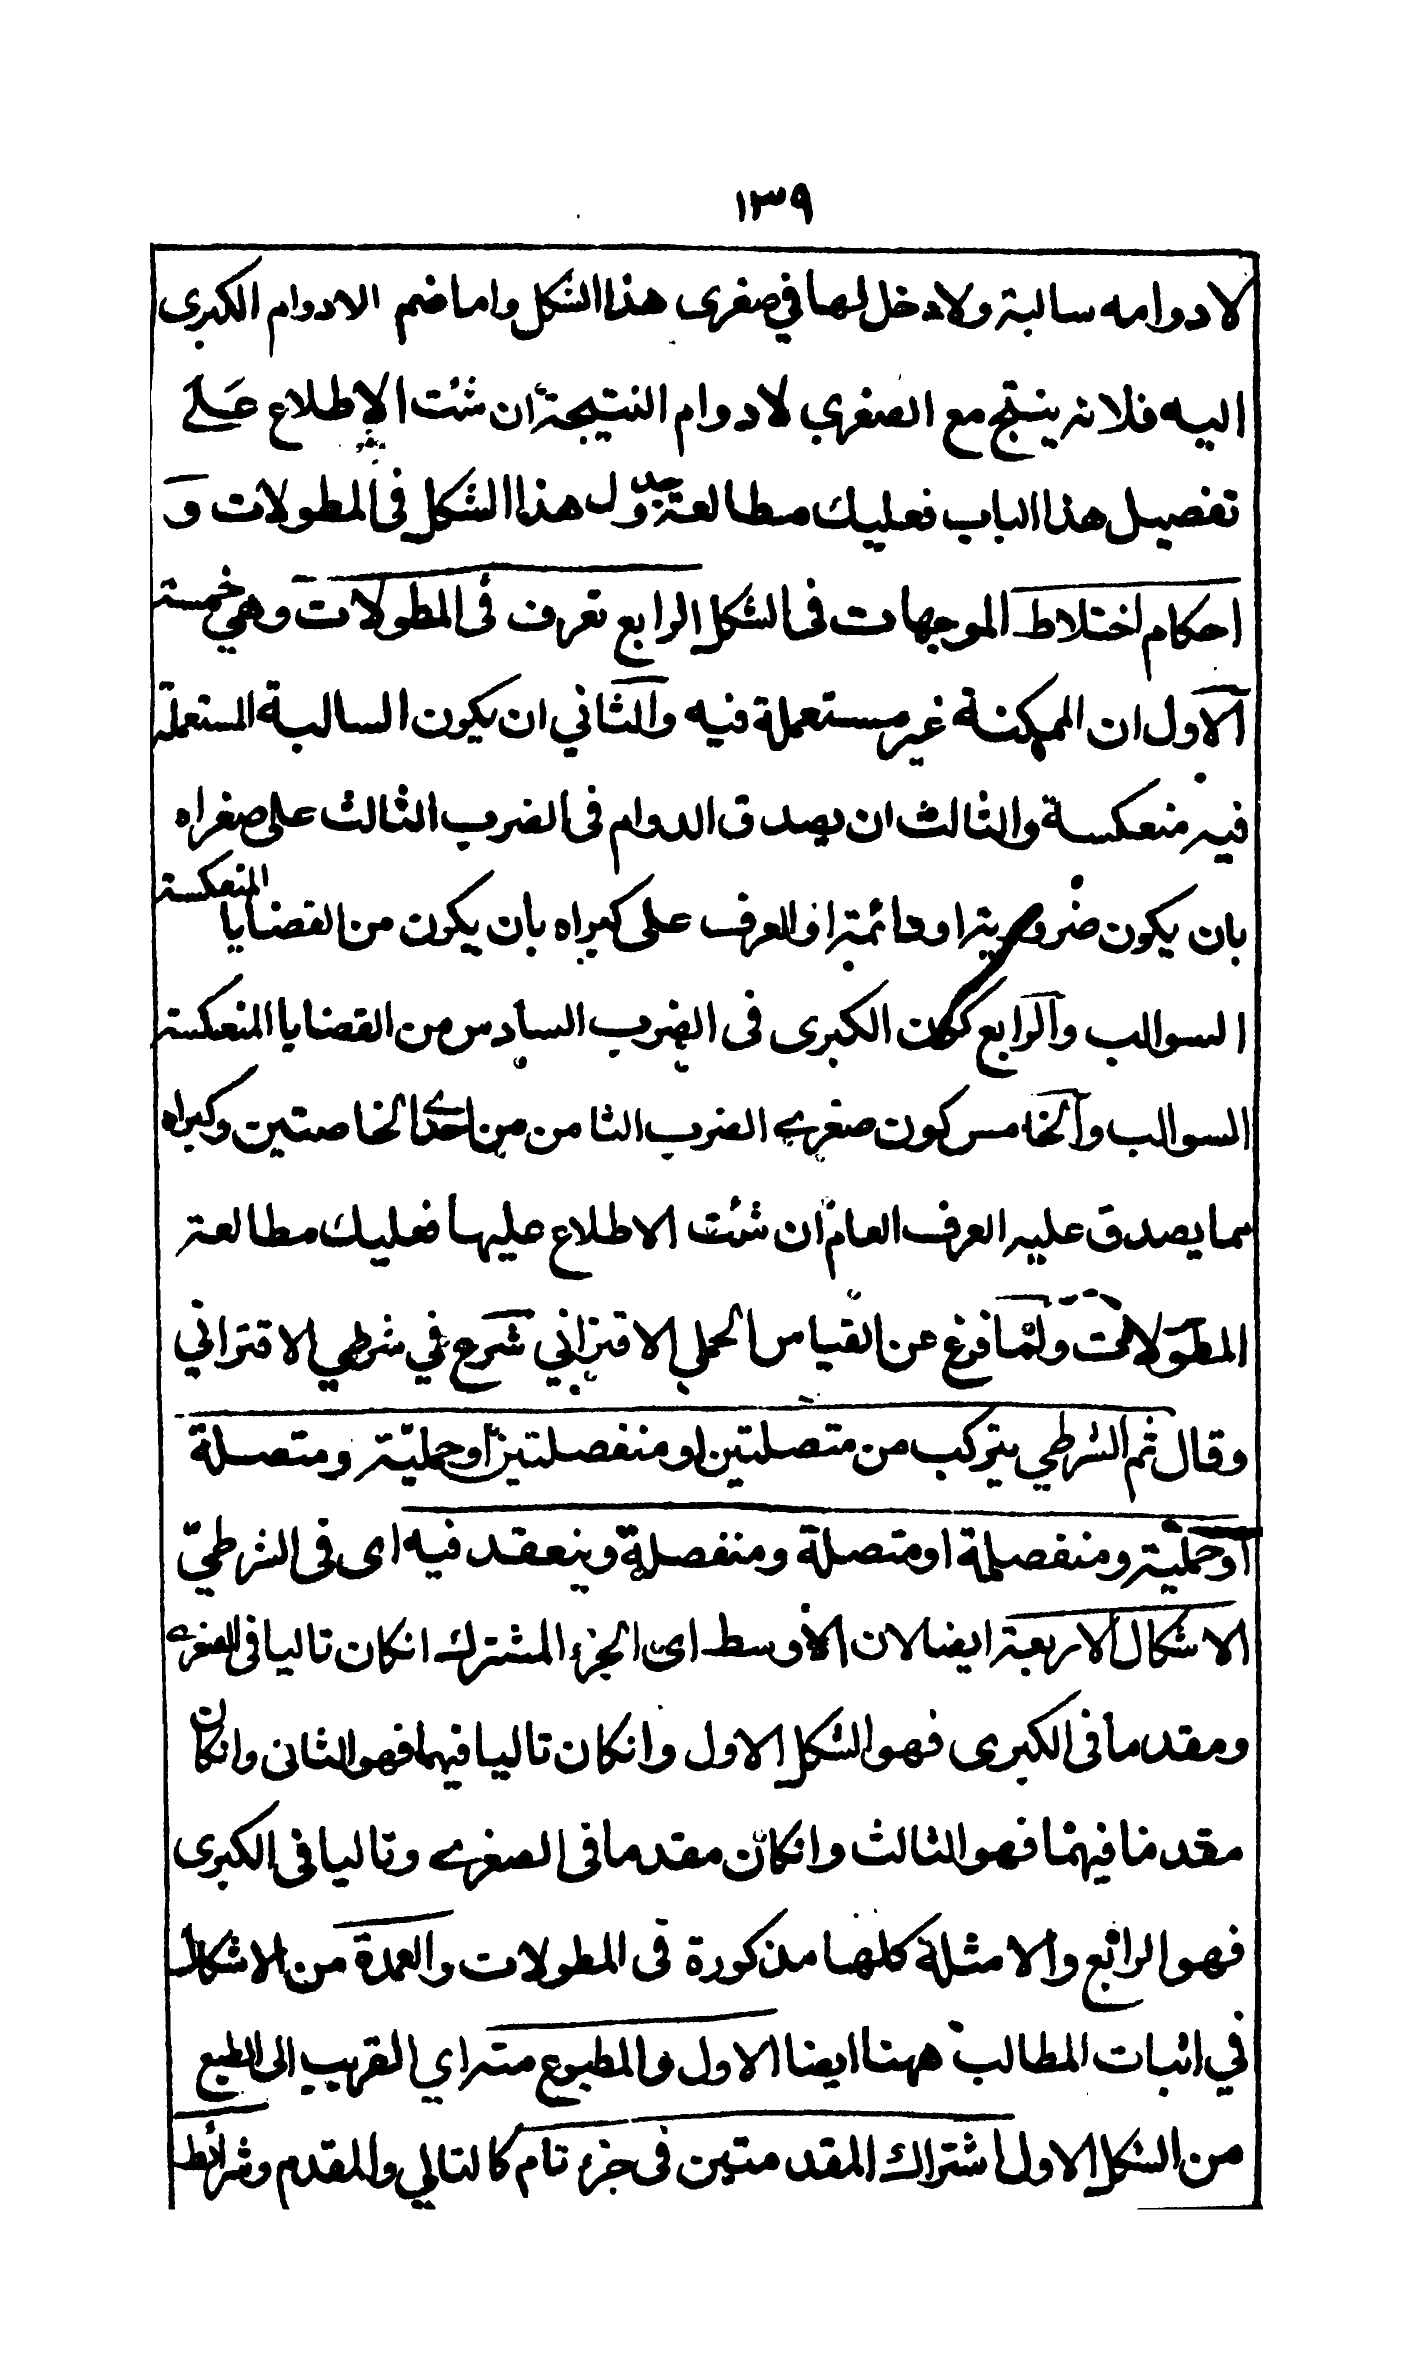 ١٣٩
لادوامه سالبة ولادخل لها في صغرى هذا الشكل واما ضم الادوام الكبرى
اليه فلانه ينتج مع الصغرى لادوام النتيجة ان شئت الاطلاع على
تفصيل هذا الباب فعليك مطالعة جدول هذا الشكل فى المطولات و
احكام اختلاط الموجهات فى الشكل الرابع تعرف فى المطولات وهي خمسة
الاول ان الممكنة غير مستعملة فيه والثاني ان يكون السالبة المستعملة
فيه منعكسة والثالث ان يصدق الدوام فى الضرب الثالث على صغراه
بان يكون ضرورية او دائمة او العرف على كبراه بان يكون من القضايا المنعكسة
السوالب والرابع كون الكبرى فى الضرب السادس من القضايا المنعكسة
السوالب والخامس كون صغرى الضرب الثامن من احدى الخاصتين وكبراه
مما يصدق عليه العرف العام ان شئت الاطلاع عليها فعليك مطالعة
المطولات ولما فرغ عن القياس الحملي الاقتراني شرع في شرطي الاقتراني
وقال ثم الشرطي يتركب من متصلتين او منفصلتين او حملية ومتصلة
او حملية ومنفصلة او متصلة ومنفصلة وينعقد فيه اى فى الشرطيّ
الاشكال الاربعة ايضا لان الاوسط اى الجزء المشترك انكان تاليا فى الصغرى
ومقدما فى الكبرى فهو الشكل الاول وانكان تاليا فيهما فهو الثانى وانكان
مقدما فيهما فهو الثالث وانكان مقدما فى الصغرى وتاليا فى الكبرى
فهو الرابع والامثلة كلها مذكورة فى المطولات والعمدة من الاشكال
في اثبات المطالب ههنا ايضا الاول والمطبوع منه اي القريب الى الطبع
من الشكل الاول اشتراك المقدمتين فى جزء تام كالتالي والمقدم وشرائط